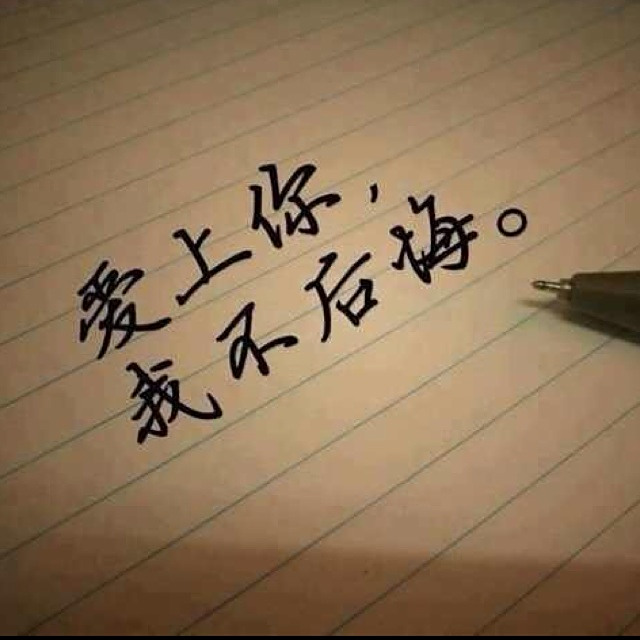 爱上你，
我不后悔。